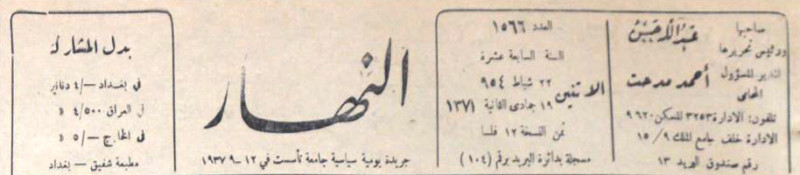 صاحبها
ورئيس تحريرها
عبدالله حسن
المدير المسؤول
المحامي
أحمد مدحت
تلفون: الادارة ٣٢٥٣ للسكن ٩٦٢٠
الادارة خلف جامع الملك ٩ / ١٥
رقم صندوق البريد ١٣
العدد ١٥٦٦
السنة السابعة عشرة
الاثنين
٢٢ شباط ٩٥٤
١٩ جمادى الثانية ١٣٧١
ثمن النسخة ١٢ فلسا
مسجلة بدائرة البريد برقم (١٠٤)
النهار
جريدة يومية سياسية جامعة تأسست في ١٢-٩-١٩٣٧
بدل المشاركة
في بغداد -/٤ دنانير
في العراق ٤/٥٠٠ »
في الخارج -/٥ »
مطبعة شفيق - بغداد